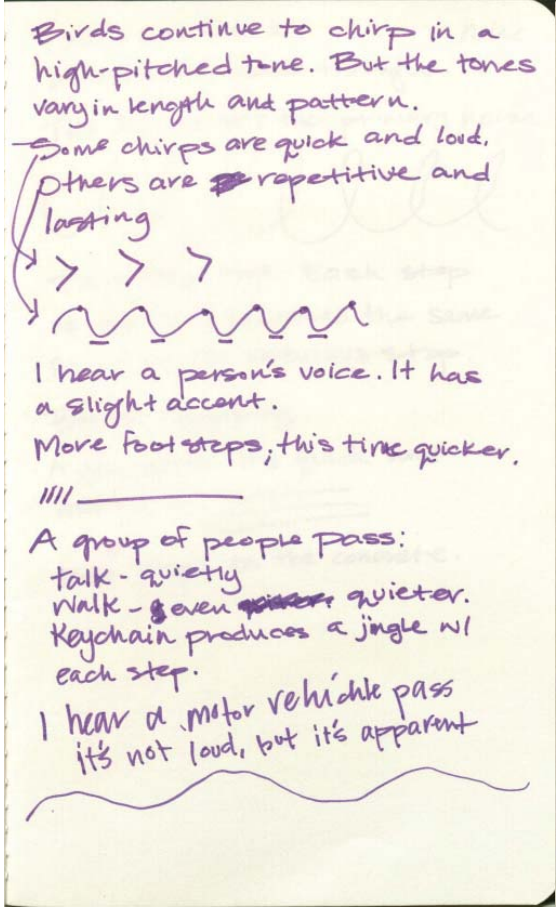 Birds continue to chirp in a
high-pitched tone. But the tones
vary in length and pattern.
Some chirps are quick and loud.
Others are repetitive and
lasting
I hear a person's voice. It has
a slight accent.
More footsteps, this time quicker.
A group of people pass:
talk - quietly
walk - even quieter.
Keychain produces a jingle w/
each step.
I hear a motor vehichle pass
it's not loud, but it's apparent